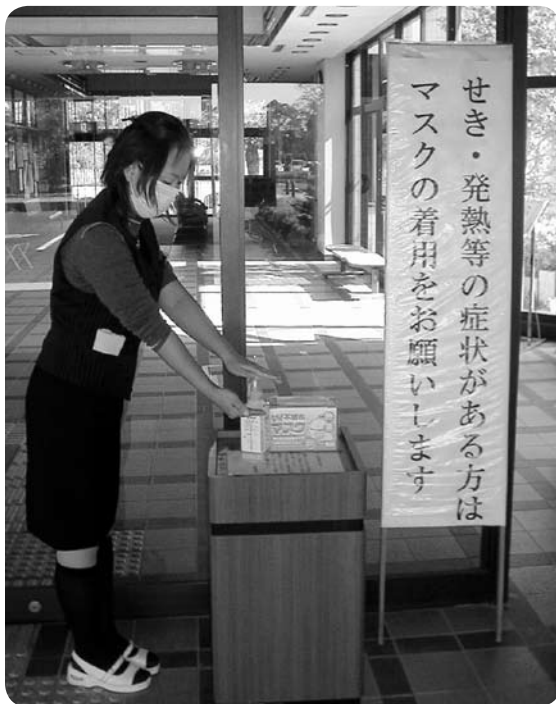 せき・発熱等の症状がある方は
マスクの着用をお願いします
マスク